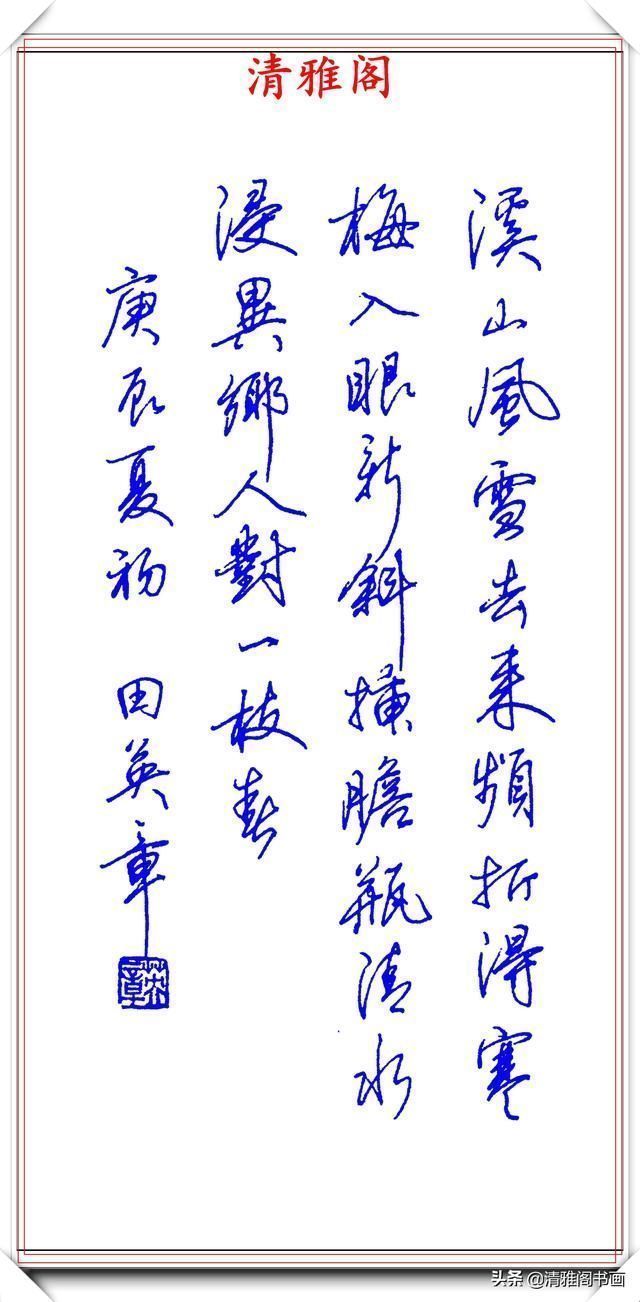 清雅阁
溪山風雪去來頻折得寒
梅入眼新斜插膽瓶清水
浸異鄉人對一枝春
庚辰夏初 田英章
头条@清雅阁书画